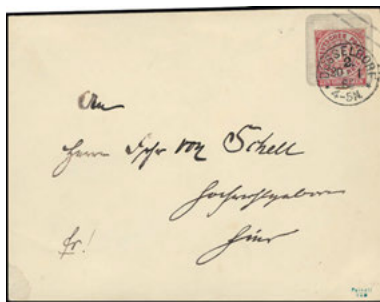 DÜSSELDORF
2.
4-5N.
An
Herrn Frhr von Schell
Hochwohlgeboren
hier
fr!